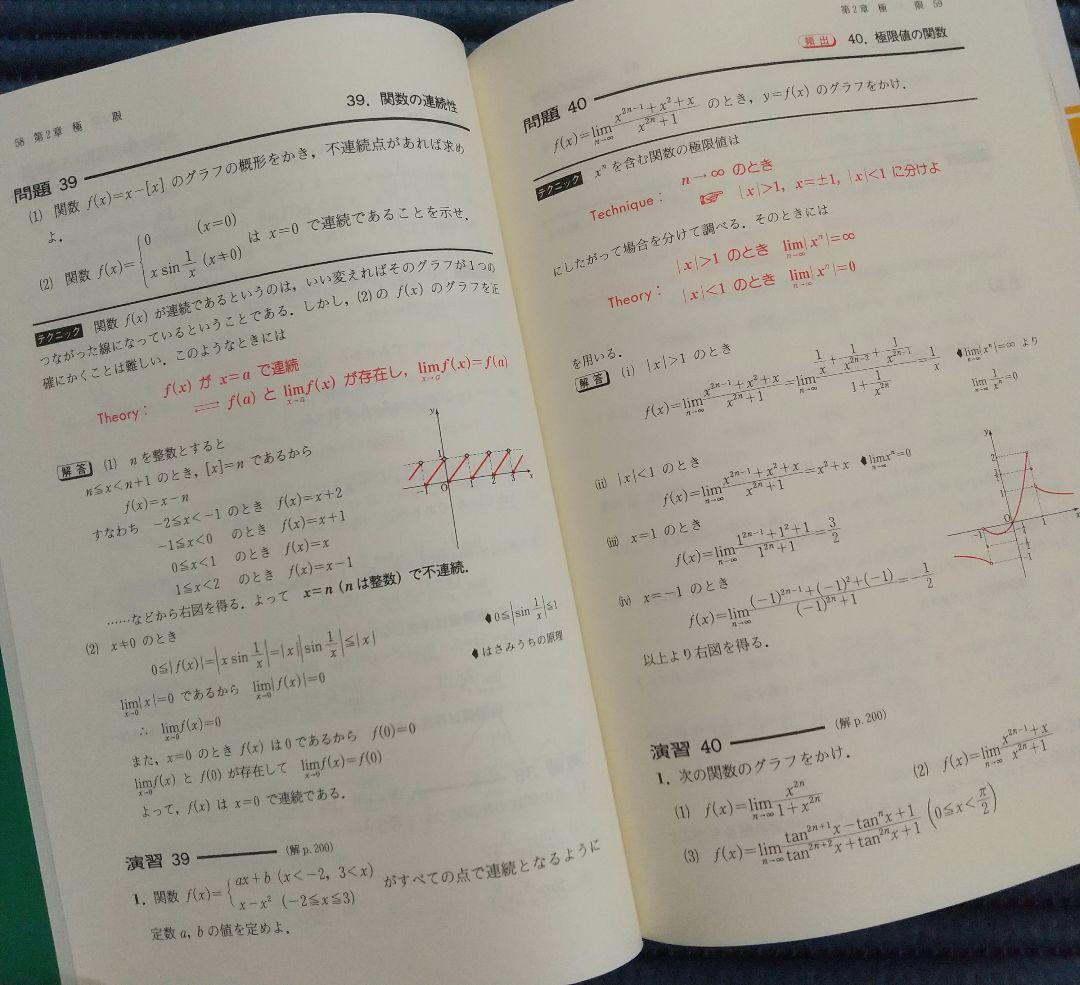 58 第2章 極 限
39. 関数の連続性
問題 39
(1) 関数 f(x)=x−[x] のグラフの概形をかき，不連続点があれば求め
よ．
(2) 関数 f(x)={0 (x=0) x sin 1/x (x≠0) は x=0 で連続であることを示せ．
テクニック 関数 f(x) が連続であるというのは，いい変えればそのグラフが1つの
つながった線になっているということである．しかし，(2)の f(x) のグラフを正
確にかくことは難しい．このようなときには
f(x) が x=a で連続
Theory： ⇌ f(a) と lim_{x→a} f(x) が存在し，lim_{x→a} f(x)=f(a)
解答 (1) n を整数とすると
n≦x<n+1 のとき，[x]=n であるから
f(x)=x−n
すなわち −2≦x<−1 のとき f(x)=x+2
−1≦x<0 のとき f(x)=x+1
0≦x<1 のとき f(x)=x
1≦x<2 のとき f(x)=x−1
……などから右図を得る．よって x=n (n は整数) で不連続．
y
1
−1 O 1 2 3 x
(2) x≠0 のとき
0≦|f(x)|=|x sin 1/x|=|x||sin 1/x|≦|x|
♦0≦|sin 1/x|≦1
lim_{x→0}|x|=0 であるから lim_{x→0}|f(x)|=0
♦はさみうちの原理
∴ lim_{x→0} f(x)=0
また，x=0 のとき f(x) は0であるから f(0)=0
lim_{x→0} f(x) と f(0) が存在して lim_{x→0} f(x)=f(0)
よって，f(x) は x=0 で連続である．
演習 39 (解 p.200)
1. 関数 f(x)={ax+b (x<−2, 3<x) x−x² (−2≦x≦3) がすべての点で連続となるように
定数 a, b の値を定めよ．
第2章 極 限 59
頻出 40. 極限値の関数
問題 40
f(x)=lim_{n→∞} (x^{2n−1}+x²+x)/(x^{2n}+1) のとき，y=f(x) のグラフをかけ．
テクニック xⁿ を含む関数の極限値は
n→∞ のとき
Technique： ☞ |x|>1, x=±1, |x|<1 に分けよ
にしたがって場合を分けて調べる．そのときには
|x|>1 のとき lim_{n→∞}|xⁿ|=∞
Theory： |x|<1 のとき lim_{n→∞}|xⁿ|=0
を用いる．
解答 (i) |x|>1 のとき
f(x)=lim_{n→∞} (x^{2n−1}+x²+x)/(x^{2n}+1)=lim_{n→∞} (1/x+1/x^{2n−2}+1/x^{2n−1})/(1+1/x^{2n})=1/x
♦lim_{n→∞}|xⁿ|=∞ より
lim_{n→∞} 1/xⁿ=0
(ii) |x|<1 のとき
f(x)=lim_{n→∞} (x^{2n−1}+x²+x)/(x^{2n}+1)=x²+x ♦lim_{n→∞} xⁿ=0
(iii) x=1 のとき
f(x)=lim_{n→∞} (1^{2n−1}+1²+1)/(1^{2n}+1)=3/2
(iv) x=−1 のとき
f(x)=lim_{n→∞} ((−1)^{2n−1}+(−1)²+(−1))/((−1)^{2n}+1)=−1/2
以上より右図を得る．
y
2
1
−1 O 1 x
−1
演習 40 (解 p.200)
1. 次の関数のグラフをかけ．
(1) f(x)=lim_{n→∞} x^{2n}/(1+x^{2n})
(2) f(x)=lim_{n→∞} (x^{2n−1}+x)/(x^{2n}+1)
(3) f(x)=lim_{n→∞} (tan^{2n+1}x−tanⁿx+1)/(tan^{2n+2}x+tan^{2n}x+1) (0≦x<π/2)